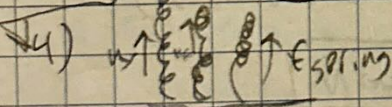 4) w↑ ↑ ↑ Espring